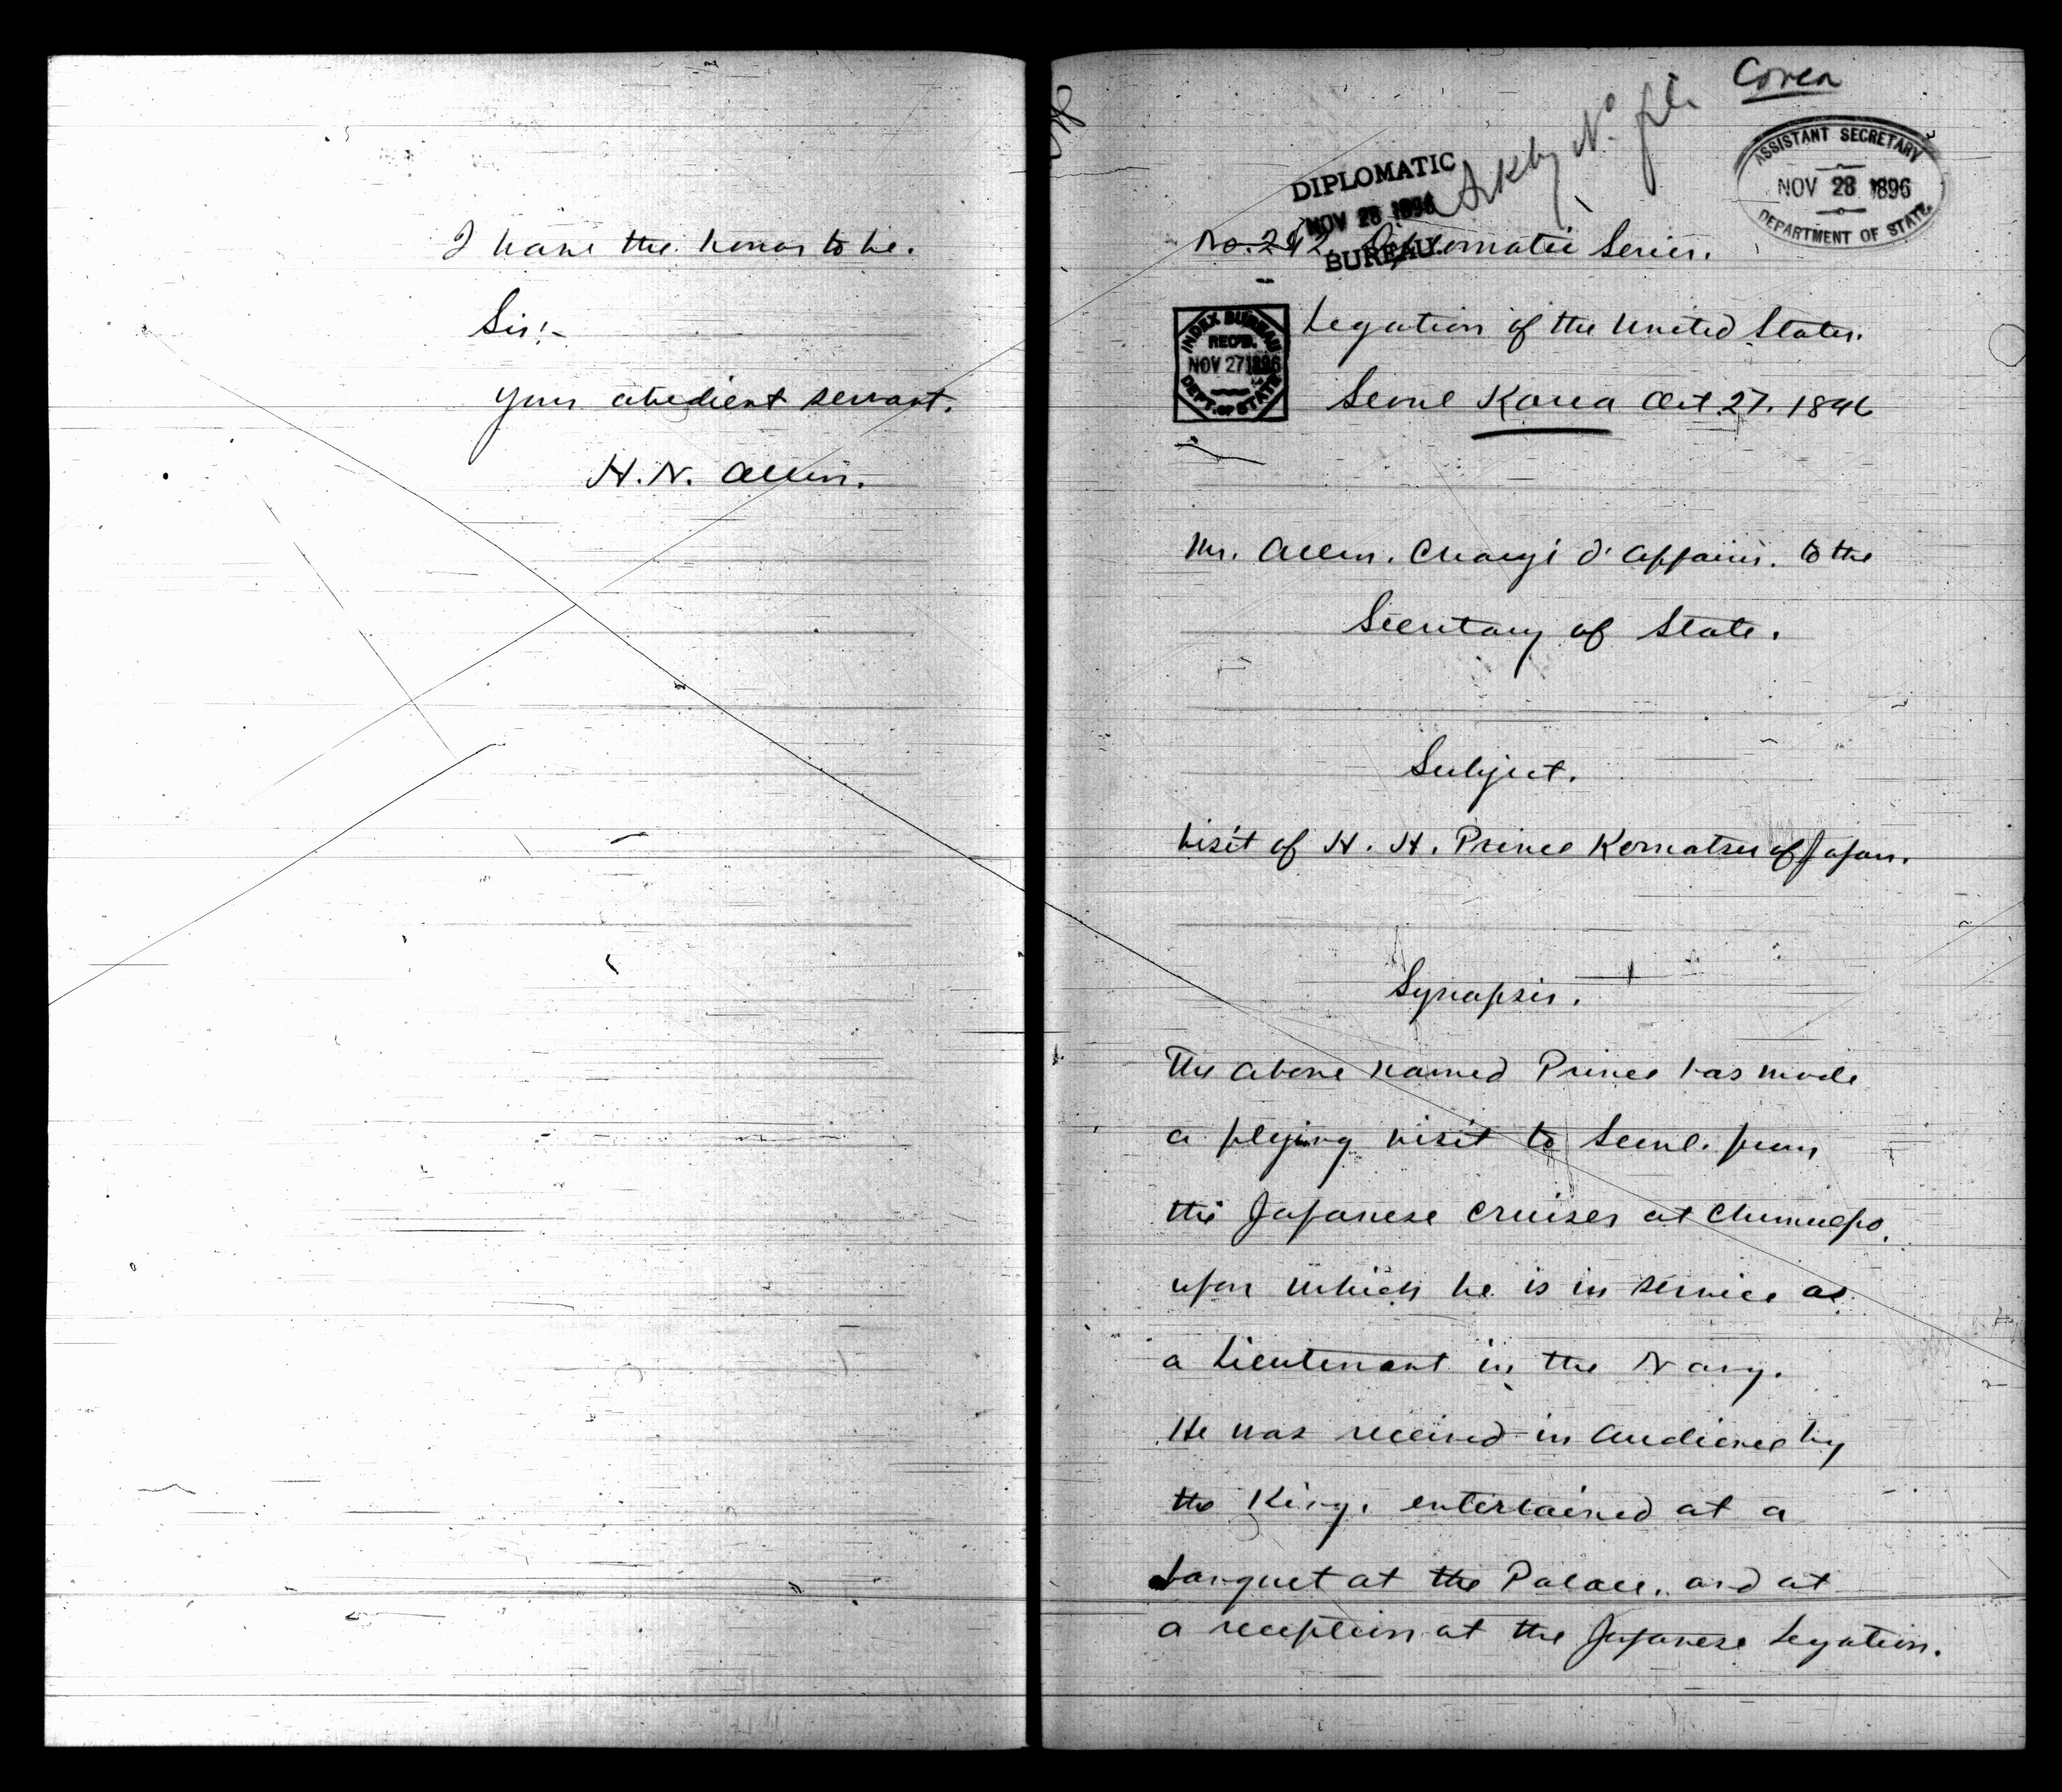 I have the honor to be.
Sir!-
Your obedient servant.
H. N. Allen.
Corea
ASSISTANT SECRETARY
NOV 28 1896
DEPARTMENT OF STATE
DIPLOMATIC
NOV 28 1896
BUREAU.
No. 242. Diplomatic Series.
INDEX BUREAU
REC'D.
NOV 27 1896
DEPT. OF STATE
Legation of the United States.
Seoul Korea Oct. 27. 1896
Mr. Allen. Chargé d'Affaires. to the
Secretary of State.
Subject.
Visit of H. H. Prince Komatsu of Japan.
Synopsis.
The above named Prince has made
a flying visit to Seoul. from
the Japanese Cruiser at Chemulpo,
upon which he is in service as
a Lieutenant in the Navy.
He was received in Audience by
the King. entertained at a
banquet at the Palace. and at
a reception at the Japanese Legation.